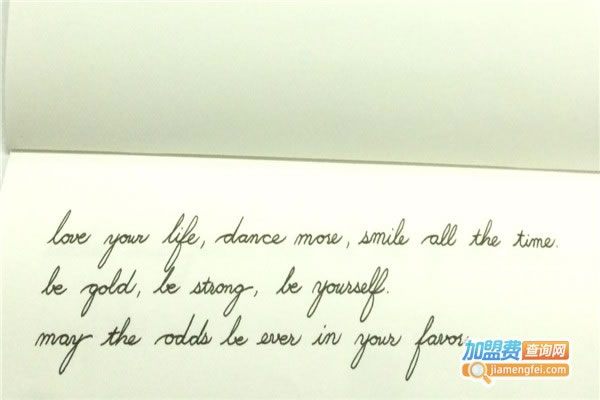 love your life, dance more, smile all the time.
be gold, be strong, be yourself.
may the odds be ever in your favor.
加盟费查询网
jiamengfei.com